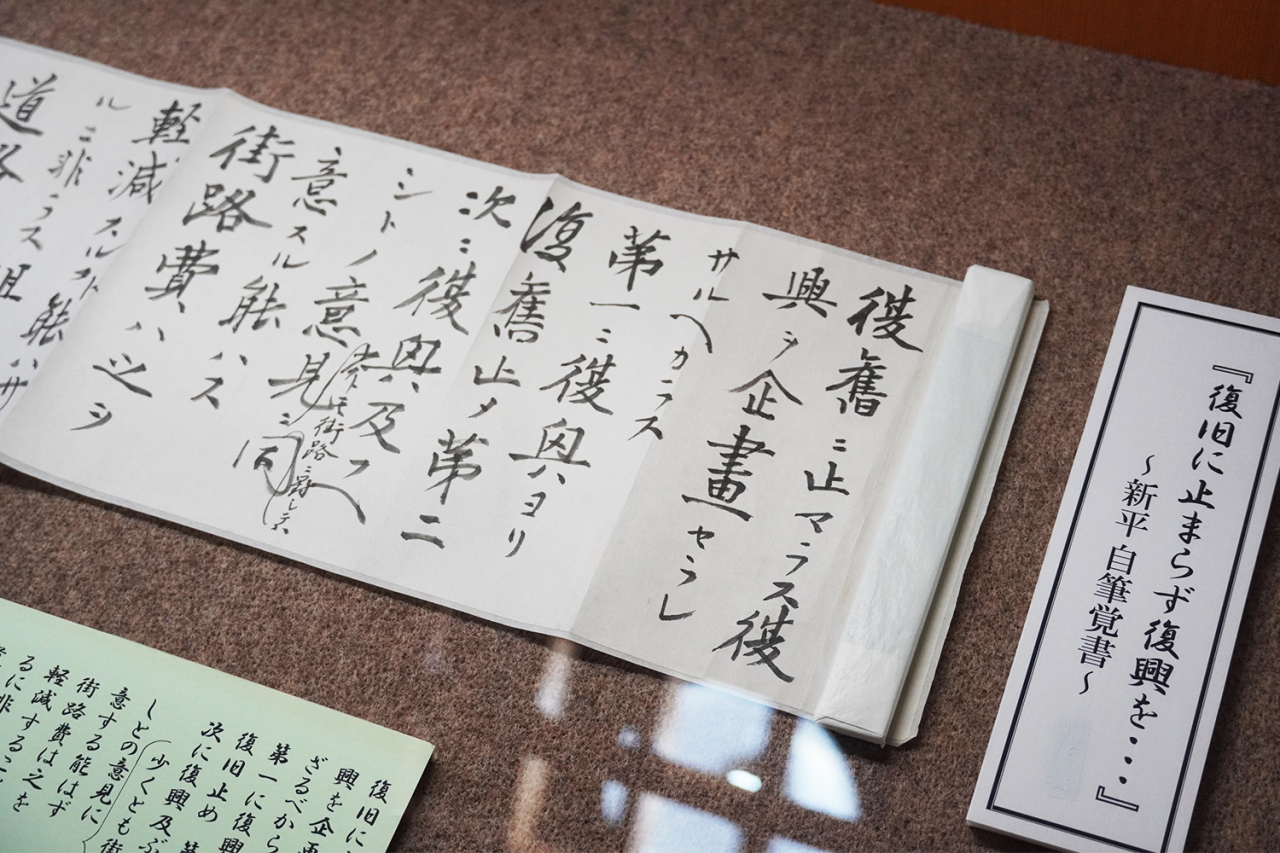 『復旧に止まらず復興を・・・』
～新平 自筆覚書～
復舊ニ止マラス復
興ヲ企畫セラレ
サルヘカラス
第一ニ復興ハヨリ
復舊止メ第二
次ニ復興及フヘ
シトノ意見ニ同
少クモ街路ニ
意スル能ハス
街路費ハ之ヲ
軽減スルコト能ハサ
ルニ非ラス
道路
復旧に
興を企画
ざるべから
第一に復興
復旧止め
次に復興及ぶ
しとの意見に
(少くとも街
意する能はず
街路費は之を
軽減するこ
るに非